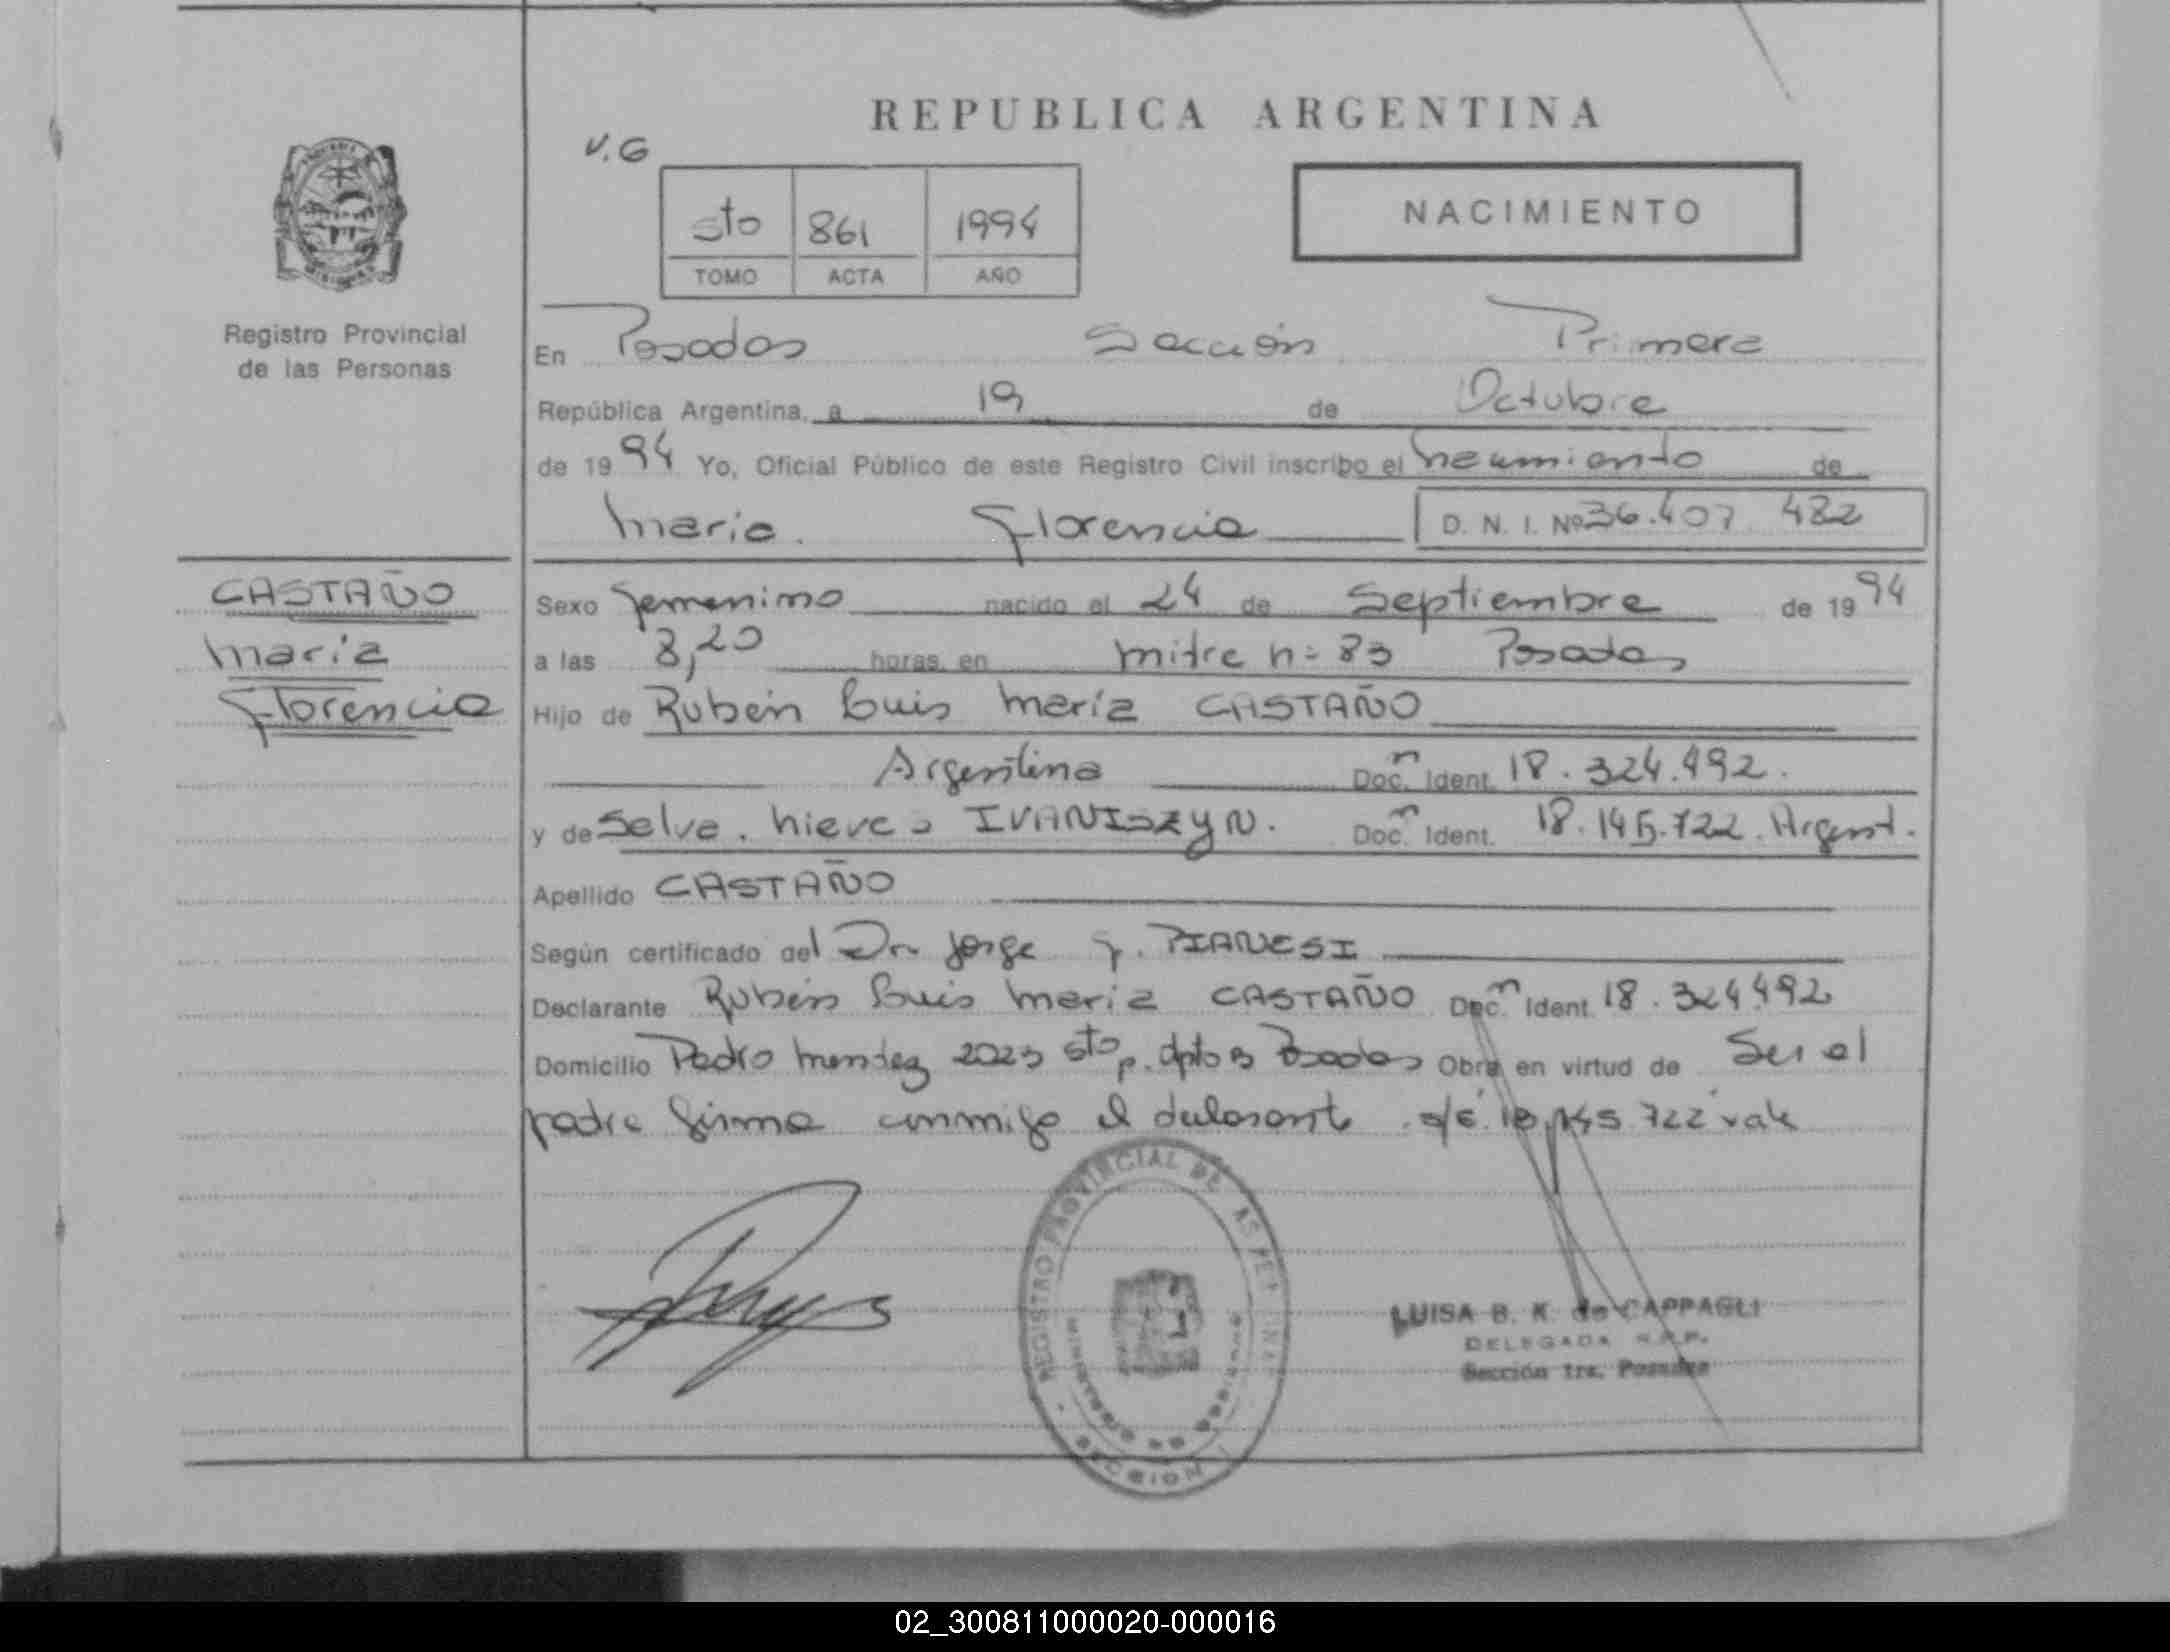 REPUBLICA ARGENTINA
V.G
5to 861 1994
TOMO ACTA AÑO
NACIMIENTO
Registro Provincial
de las Personas
En Posadas Sección Primera
República Argentina, a 19 de Octubre
de 1994 Yo, Oficial Público de este Registro Civil inscribo el nacimiento de
María Florencia D. N. I. Nº 36.407.482
CASTAÑO
María
Florencia
Sexo femenino nacido el 24 de Septiembre de 1994
a las 8,20 horas, en mitre nº 83 Posadas
Hijo de Rubén Luis María CASTAÑO
Argentina Doc. Ident. 18.324.492.
y de Selva Nieves IVANISZYN. Doc. Ident. 18.145.722. Argent.
Apellido CASTAÑO
Según certificado del Dr. Jorge J. PIANESI
Declarante Rubén Luis María CASTAÑO Doc. Ident. 18.324.492
Domicilio Pedro Mendez 2023 5to p. dpto B Posadas Obra en virtud de Ser el
padre firma conmigo el declarante. s/e 18.145.722 vale
REGISTRO PROVINCIAL DE LAS PERSONAS
SECCION
LUISA B. K. de CAPPAGLI
DELEGADA R.P.P.
Sección 1ra. Posadas
02_300811000020-000016